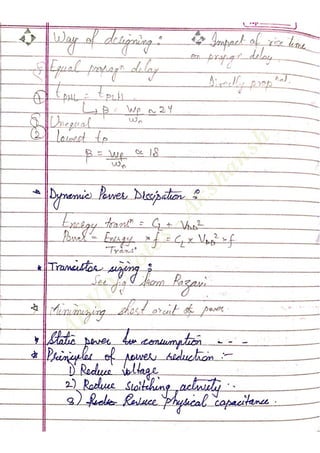 Way of designing :
Impact of rise time
on propagn delay.
Equal propagn delay
Directly propnal.
① tPHL = tPLH
↳ β = Wp/Wn ≈ 24
① Unequal
② lowest tp
β = Wp/Wn ≈ 18
Dynamic Power Dissipation :
Energy transn = CL + VDD²
Power = Energy/Transn × f = CL × VDD² × f
Transistor sizing :
See fig from Razavi
Minimizing short circuit power
Static power consumption - - -
Principles of power reduction :-
1) Reduce voltage
2) Reduce switching activity ..
3) Reduce physical capacitance.